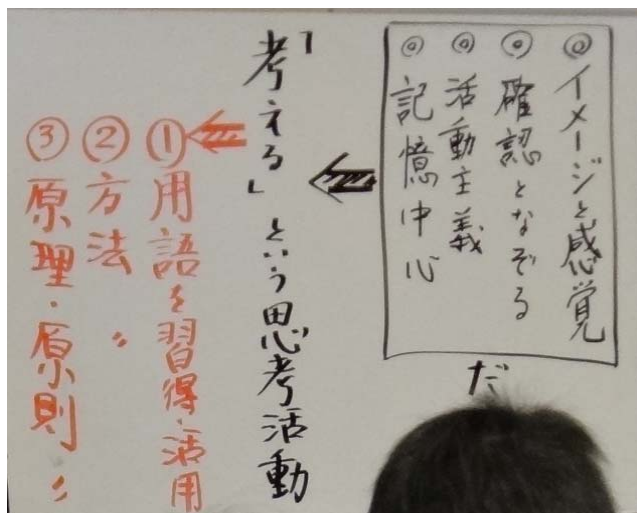 ◎イメージと感覚
◎確認となぞる
◎活動主義
◎記憶中心
だ
「考える」という思考活動
①用語を習得・活用
②方法〃
③原理・原則〃